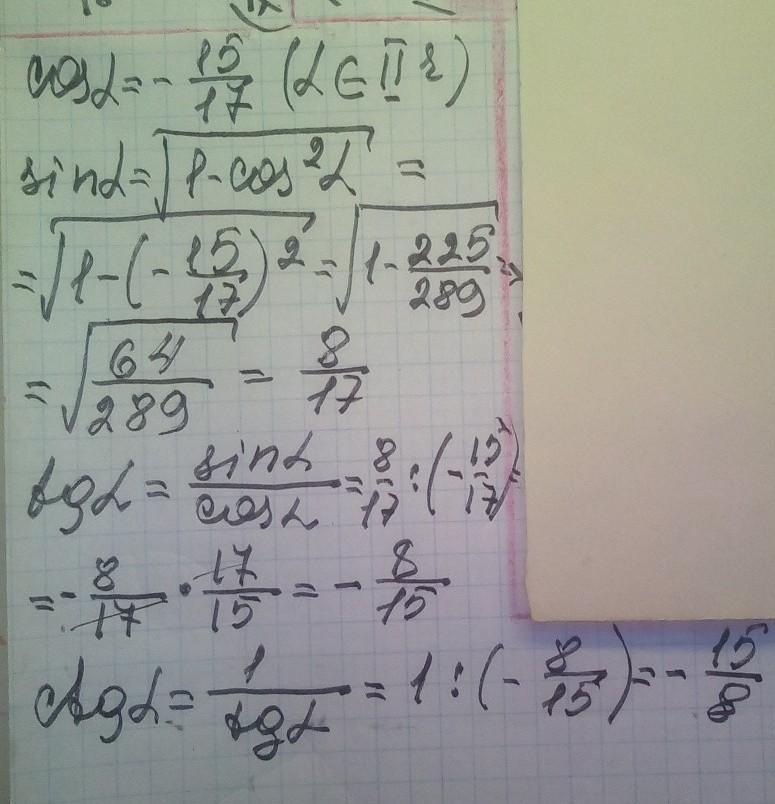 cosα = - 15/17 (α ∈ II г)
sinα = √(1 - cos²α) =
= √(1 - (- 15/17)²) = √(1 - 225/289) =
= √(64/289) = 8/17
tgα = sinα/cosα = 8/17 : (- 15/17) =
= - 8/17 · 17/15 = - 8/15
ctgα = 1/tgα = 1 : (- 8/15) = - 15/8